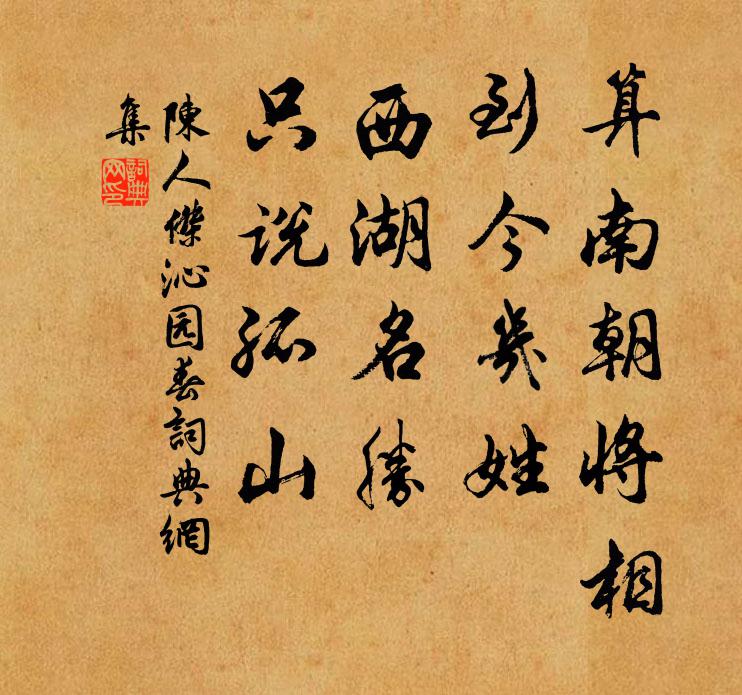 算南朝將相
到今幾姓
西湖名勝
只說孤山
陳人傑沁园春詞典網
集
詞典
网印